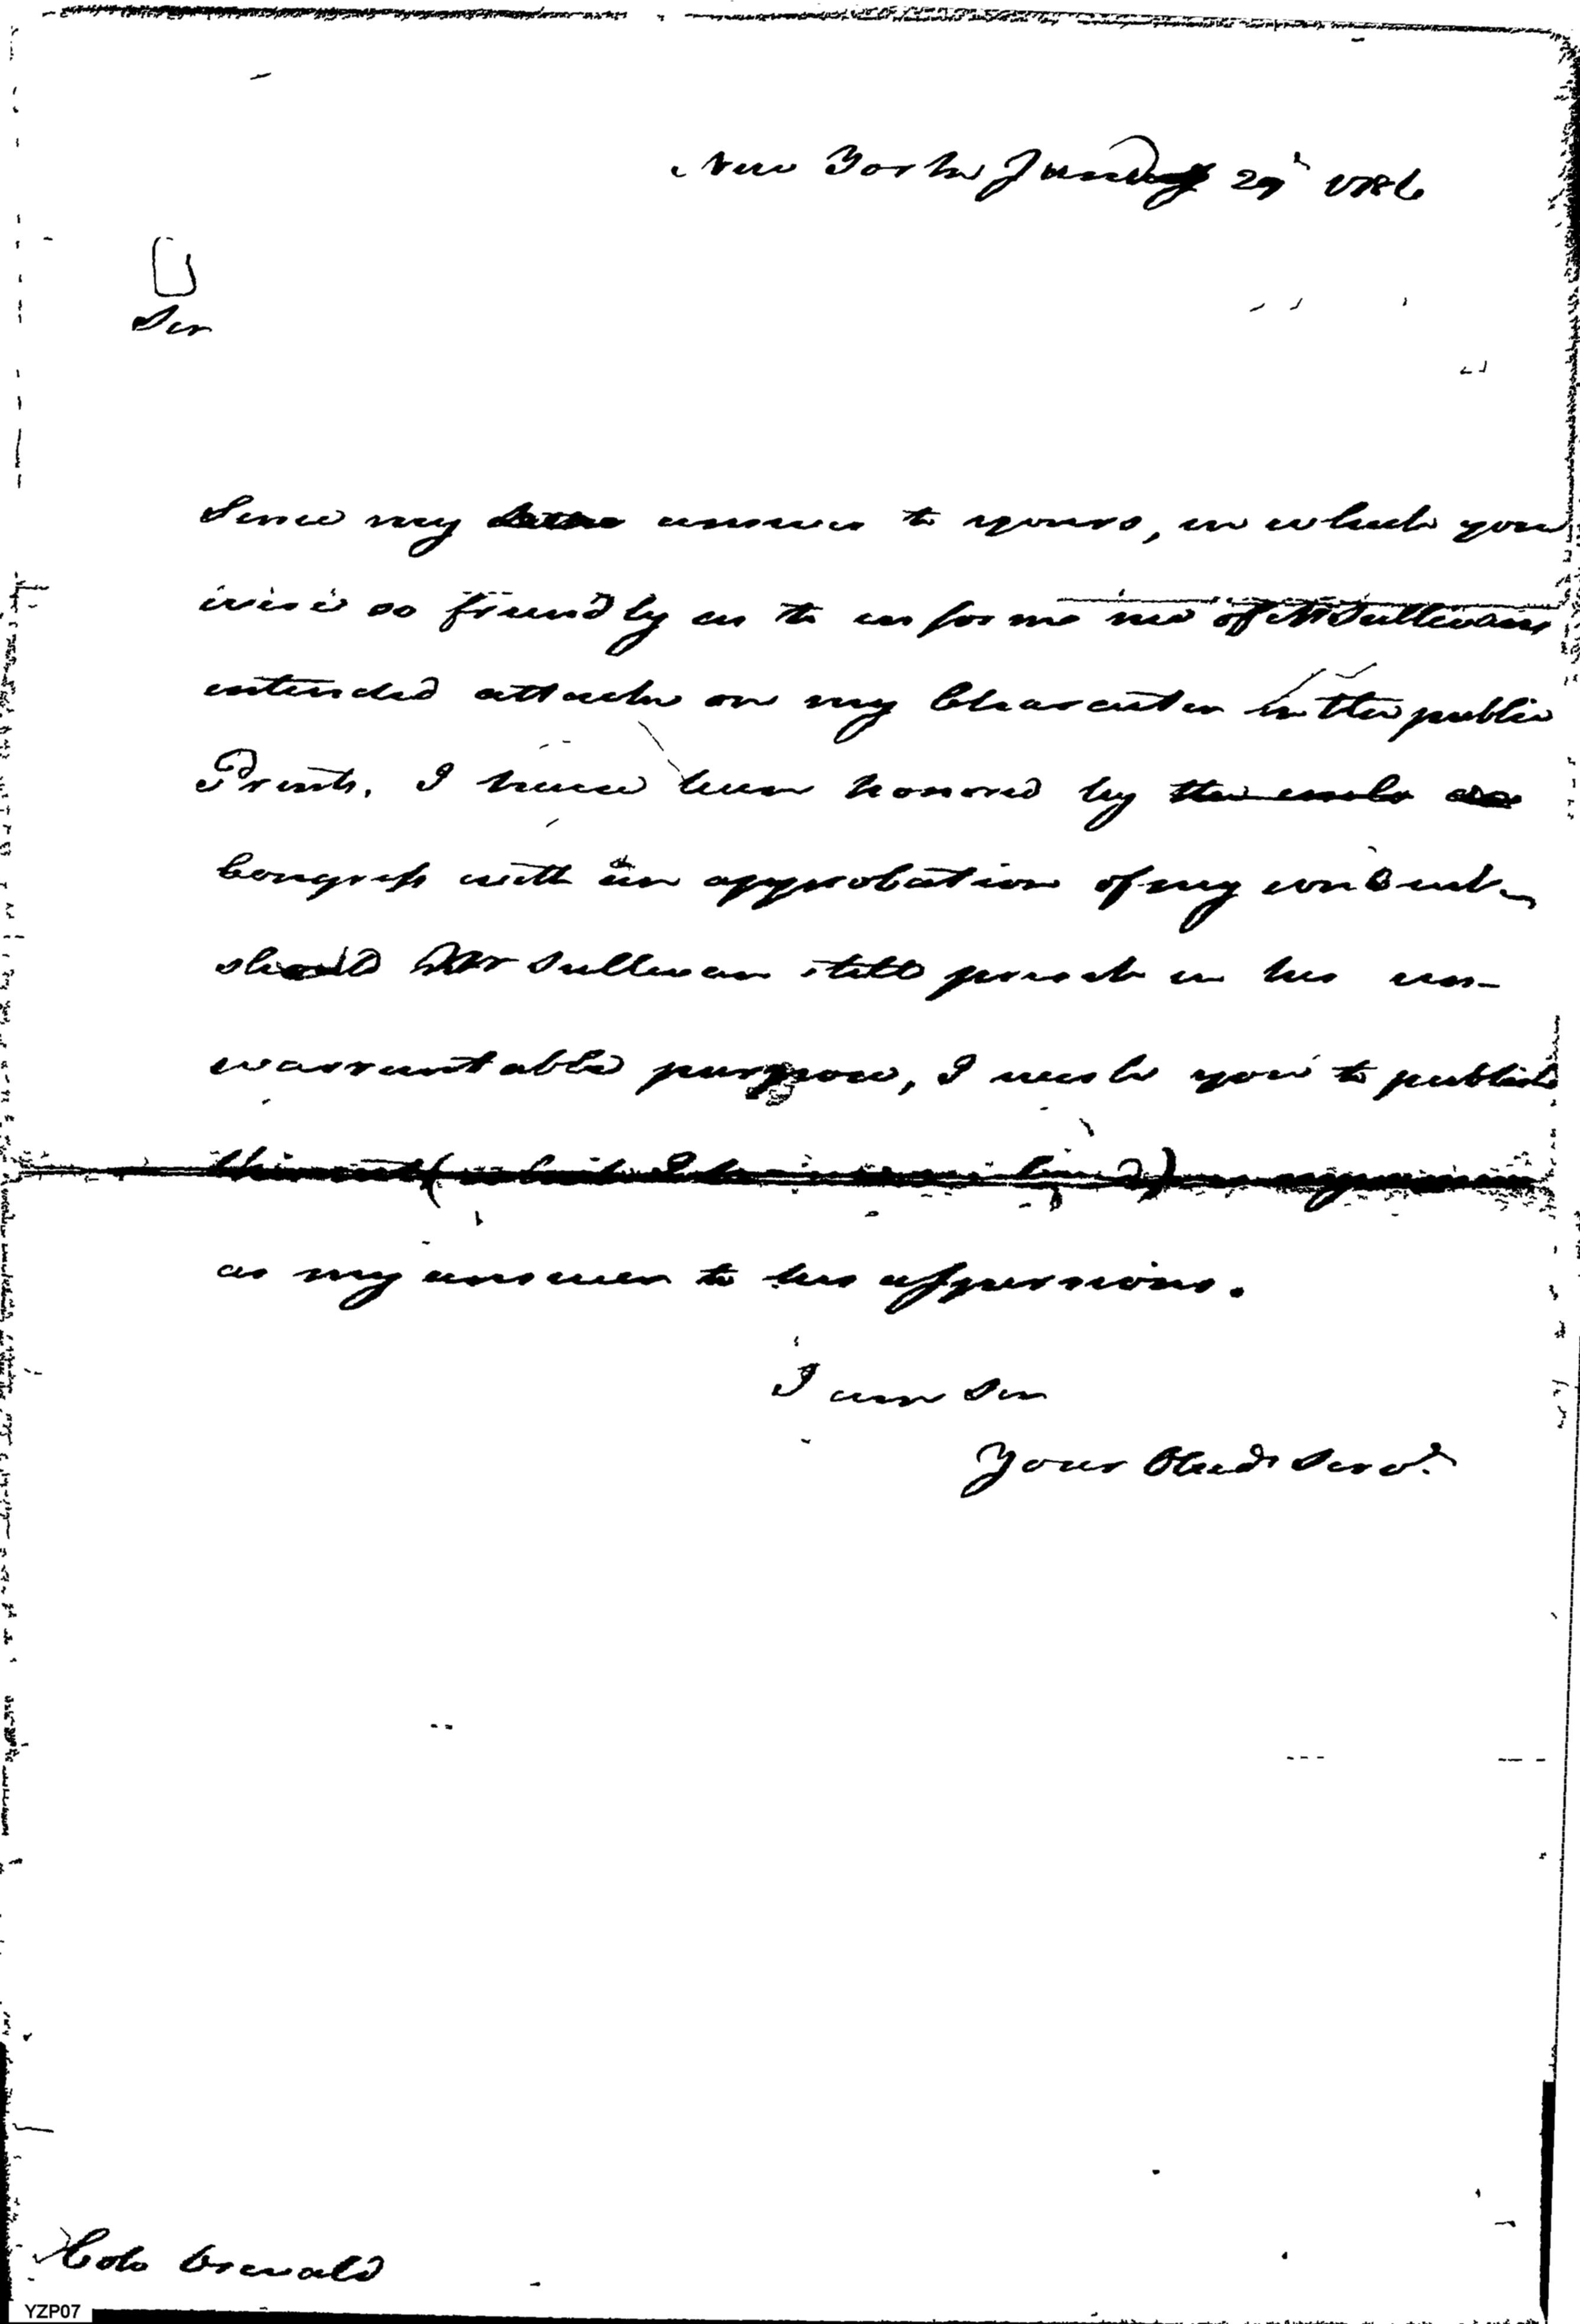 New York Jan<sup>y</sup> 29 1786
Sir
Since my answer to yours, in which you
were so friendly as to inform me of Mr Sullivans
intended attack on my Character in the public
Prints. I have been honored by
Congress with an approbation of my conduct –
should Mr Sullivan still persist in his un-
warrantable purpose, I wish you to publish
as my answer to his aspersions.
I am Sir
Your Obedt Servt
Colo Oswald
YZP07